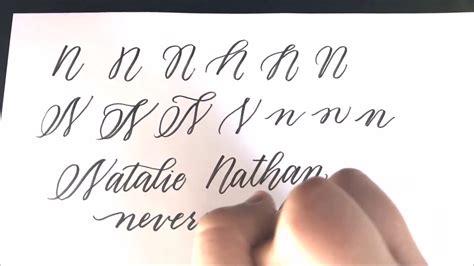 n n n n n n
N N N N n n n
Natalie Nathan
never